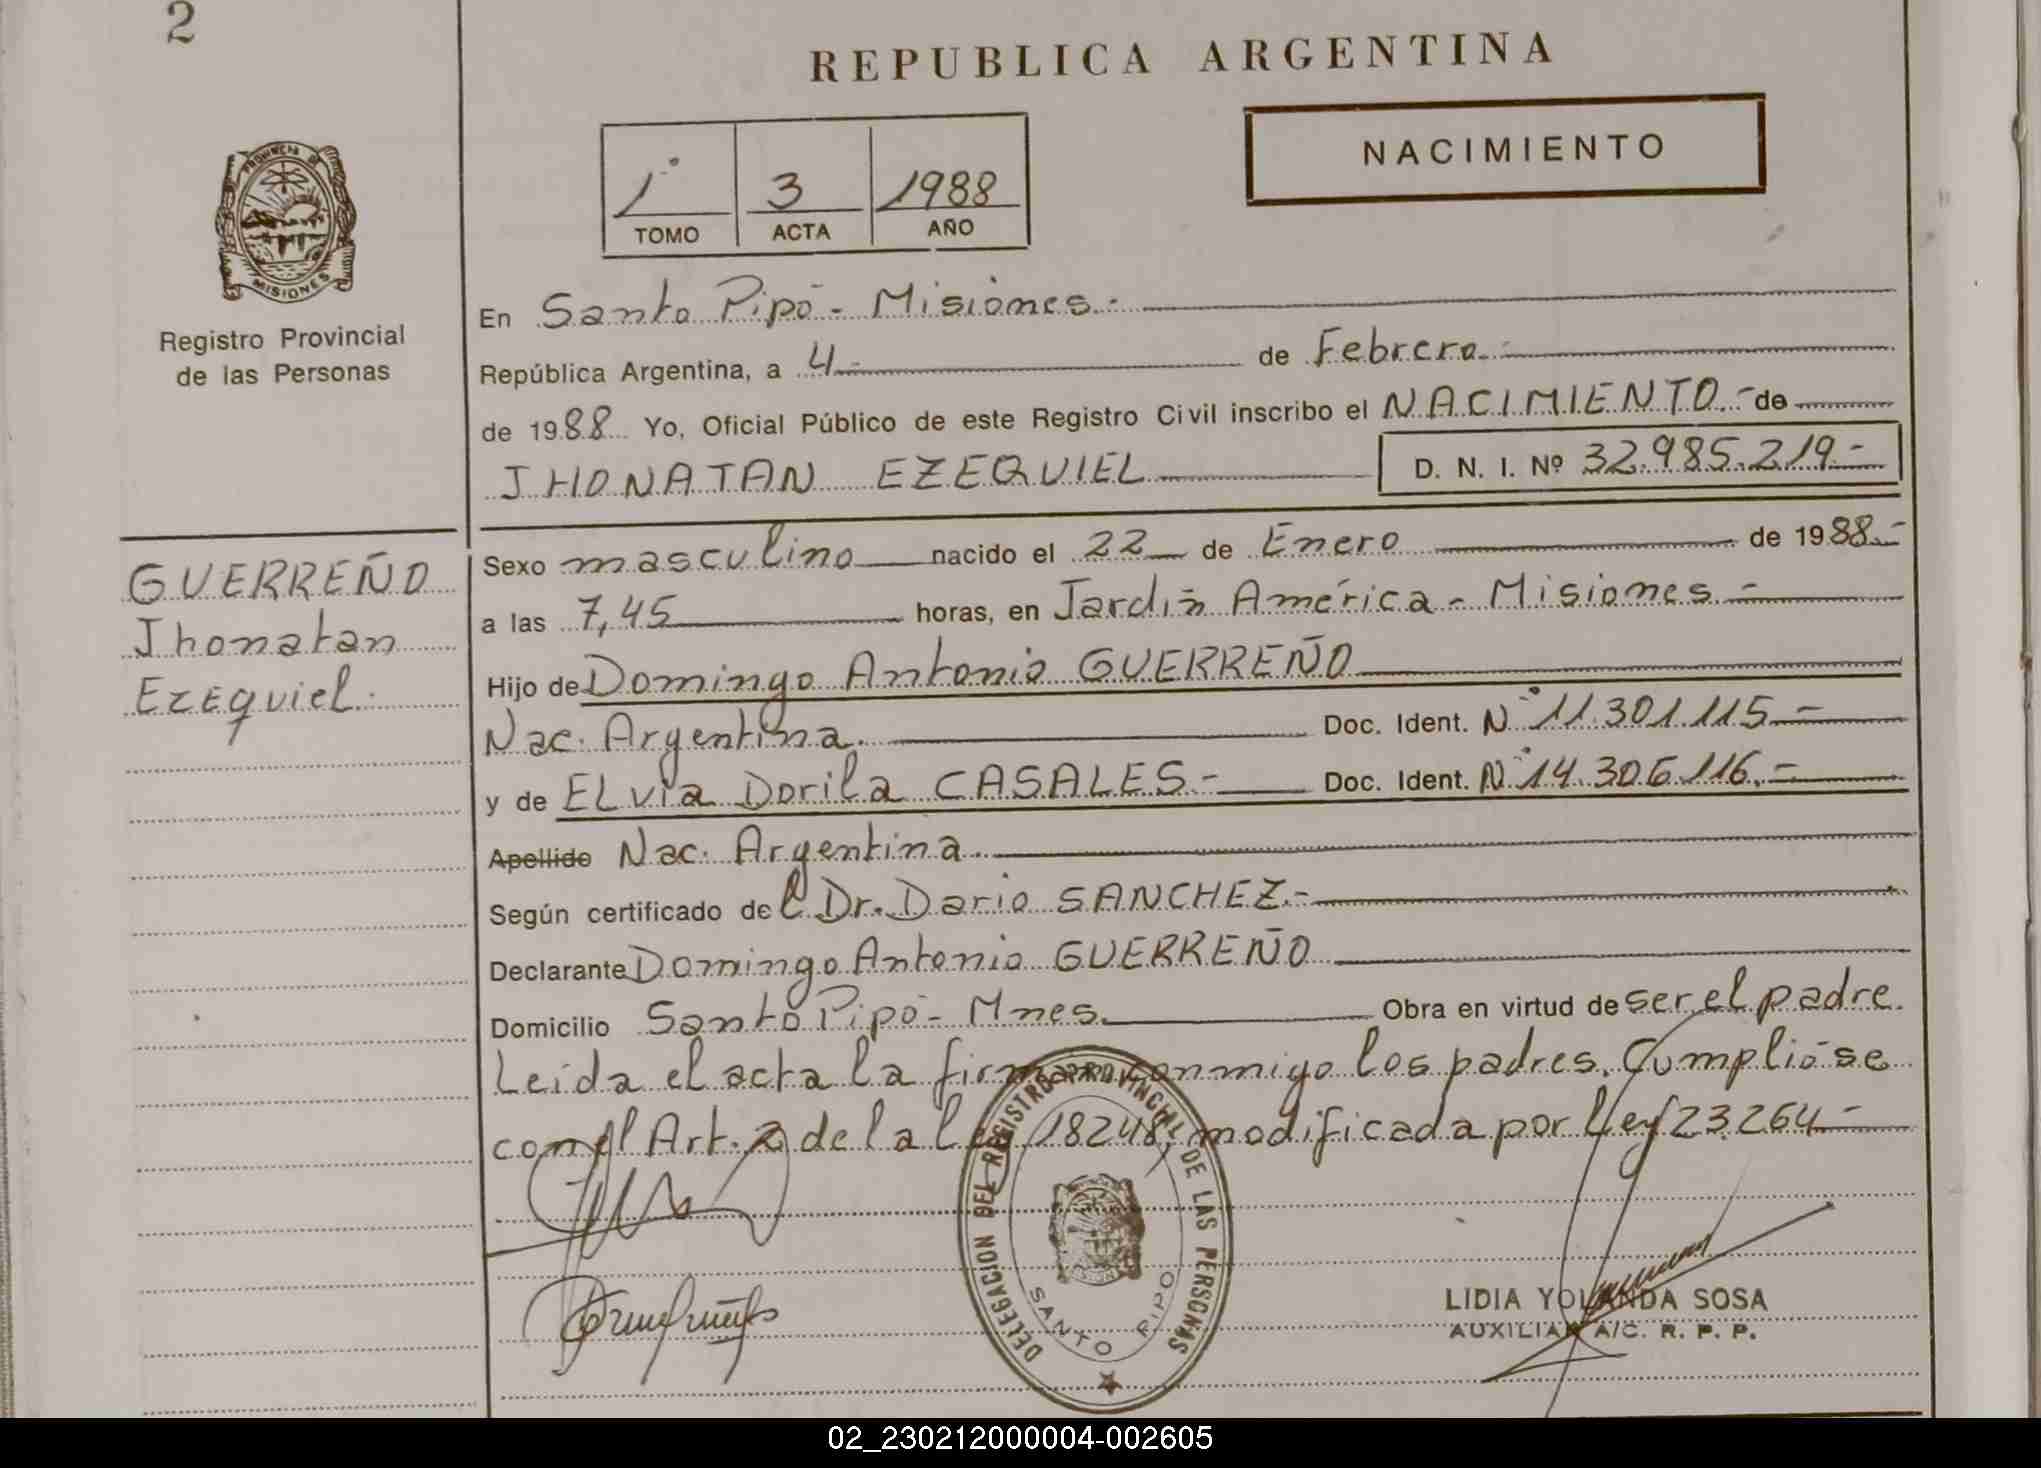 2
REPUBLICA ARGENTINA
NACIMIENTO
1° 3 1988
TOMO ACTA AÑO
PROVINCIA DE
MISIONES
Registro Provincial
de las Personas
En Santo Pipó - Misiones.-
República Argentina, a 4.- de Febrero.-
de 1988 Yo, Oficial Público de este Registro Civil inscribo el NACIMIENTO.- de
JHONATAN EZEQUIEL D. N. I. Nº 32.985.219.-
GUERREÑO
Jhonatan
Ezequiel.
Sexo masculino nacido el 22 de Enero de 1988.-
a las 7,45 horas, en Jardín América - Misiones.-
Hijo de Domingo Antonio GUERREÑO
Nac. Argentina. Doc. Ident. N° 11.301.115.-
y de ELvia Dorila CASALES.- Doc. Ident. N° 14.306.116.-
Apellido Nac. Argentina.
Según certificado del Dr. Dario SANCHEZ.-
Declarante Domingo Antonio GUERREÑO
Domicilio Santo Pipó - Mnes. Obra en virtud de ser el padre.
Leida el acta la firman conmigo los padres. Cumplióse
con el Art. 2 de la Ley 18248, modificada por Ley 23.264.-
DELEGACION DEL REGISTRO PROVINCIAL DE LAS PERSONAS
SANTO PIPO
LIDIA YOLANDA SOSA
AUXILIAR A/C. R. P. P.
02_230212000004-002605